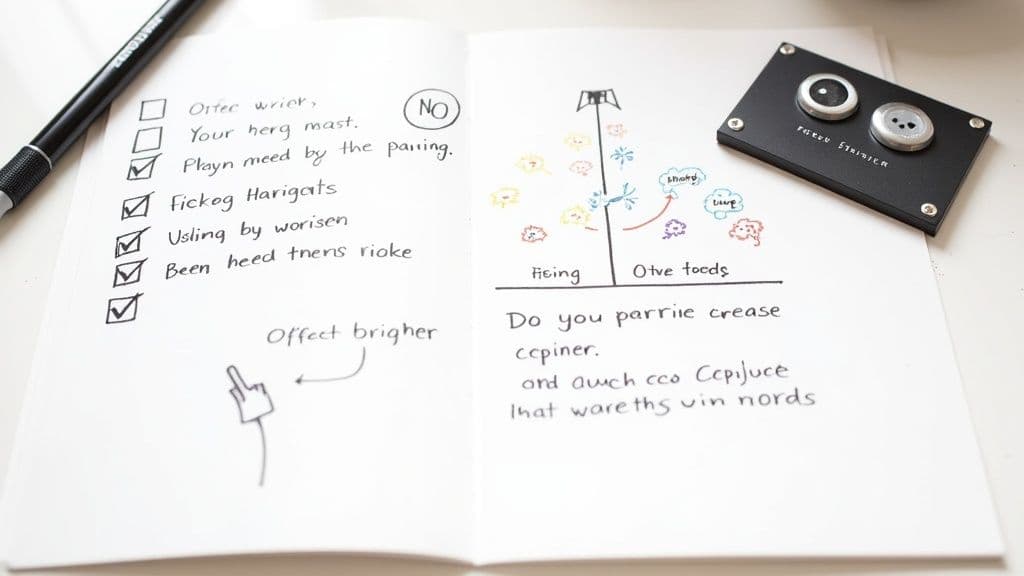 Offec wrick,
NO
Your herg mast.
Playn meed by the parring.
Fickog Harigats
Usling by worisen
Been heed tnens rioke
Offect brigher
Fieing
Otve foeds
Do you parrie crease
ccpiner.
and auch cco Ccpjuce
that wareths vin nords